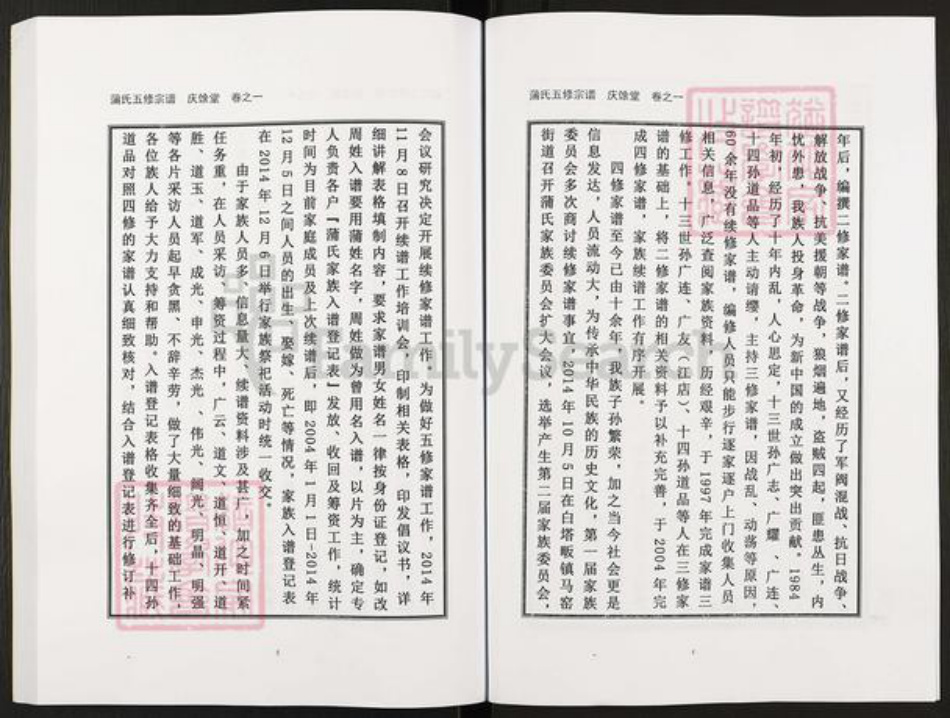 蒲氏五修宗谱 庆馀堂 卷之一
年后，编撰二修家谱。二修家谱后，又经历了军阀混战、抗日战争、
解放战争、抗美援朝等战争，狼烟遍地，盗贼四起，匪患丛生，内
忧外患，我族人投身革命，为新中国的成立做出突出贡献。1984
年初，经历了十年内乱，人心思定，十三世孙广志、广耀、广连、
十四孙道品等人主动请缨，主持三修家谱，因战乱、动荡等原因，
60余年没有续修家谱，编修人员只能步行逐家逐户上门收集人员
相关信息，广泛查阅家族资料，历经艰辛，于1997年完成家谱三
修工作。十三世孙广连、广友（江店）、十四孙道品等人在三修家
谱的基础上，将二修家谱的相关资料予以补充完善，于2004年完
成四修家谱，家族续谱工作有序开展。
四修家谱至今已由十余年，我族子孙繁荣，加之当今社会更是
信息发达，人员流动大，为传承中华民族的历史文化，第一届家族
委员会多次商讨续修家谱事宜，2014年10月5日在白塔畈镇马窑
街道召开蒲氏家族委员会扩大会议，选举产生第二届家族委员会，
蒲氏五修宗谱 庆馀堂 卷之一
会议研究决定开展续修家谱工作。为做好五修家谱工作，2014年
11月8日召开续谱工作培训会，印制相关表格，印发倡议书，详
细讲解表格填制内容，要求家谱男女姓名一律按身份证登记，如改
周姓入谱要用蒲姓名字，周姓做为曾用名入谱，以片为主，确定专
人负责各户『蒲氏家族入谱登记表』发放、收回及筹资工作，统计
时间为目前家庭成员及上次续谱后，即2004年1月1日-2014年
12月5日之间人员的出生、娶嫁、死亡等情况，家族入谱登记表
在2014年12月6日举行家族祭祀活动时统一收交。
由于家族人员多、信息量大、续谱资料涉及甚广，加之时间紧
任务重，在人员采访、筹资过程中，广云、道文、道恒、道开、道
胜、道玉、道军、成光、申光、杰光、伟光、阔光、明晶、明强
等各片采访人员起早贪黑、不辞辛劳，做了大量细致的基础工作，
各位族人给予大力支持和帮助。入谱登记表格收集齐全后，十四孙
道品对照四修的家谱认真细致核对，结合入谱登记表进行修订补
FamilySearch